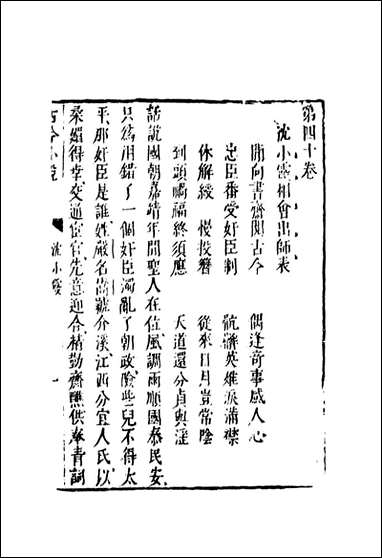 第四十卷
沈小霞相會出師表
閒向書齋閱古今 偶逢奇事感人心
忠臣番受奸臣制 骯髒英雄淚滿襟
休解綬 慢投簪 從來日月豈常陰
到頭禍福終須應 天道還分貞與淫
話說國朝嘉靖年間聖人在位風調雨順國泰民安
只爲用錯了一個奸臣濁亂了朝政險些兒不得太
平那奸臣是誰姓嚴名嵩號介溪江西分宜人氏以
柔媚得幸交通宦官先意迎合精勤齋醮供奉青詞
古今小說 沈小霞 一